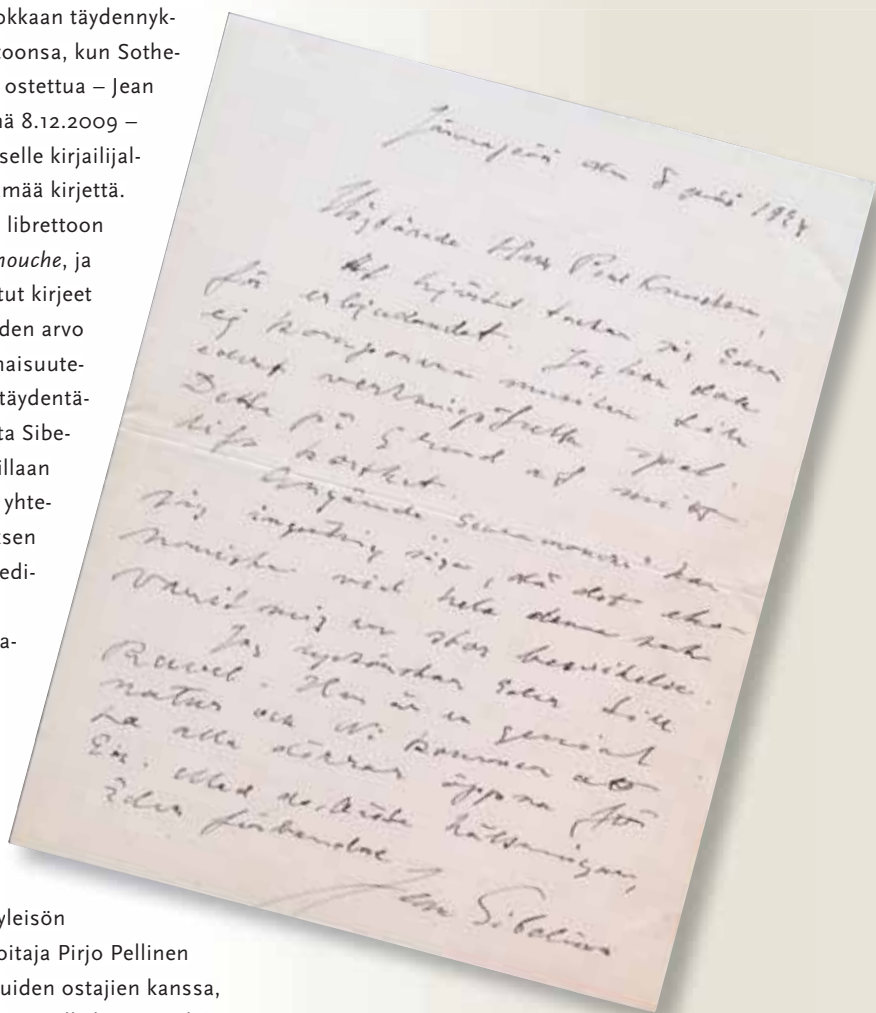 okkaan täydennyk-
toonsa, kun Sothe-
ostettua – Jean
nä 8.12.2009 –
selle kirjailijal-
mää kirjettä.
librettoon
nouche, ja
tut kirjeet
den arvo
naisuute-
täydentä-
ta Sibe-
illaan
yhte-
sen
edi-
a-
yleisön
oitaja Pirjo Pellinen
uiden ostajien kanssa,
Järvenpää den 8 1924
Högtärade Herr Poul Knudsen,
det hjärtat tackar jag Eder
för erbjudandet. Jag kan dock
ej komponera musiken till
edert spel.
Detta på grund af mitt
lifs korthet.
Angående Scaramouche kan
jag ingenting säga, då det eko-
nomiska vid hela denna sak
varit mig en stor besvikelse.
Jag lyckönskar Eder till
Ravel. Han är en genial
natur och Ni kommer att
ha alla dörrar öppna för
Er. Med de bästa hälsningar,
Eder förbundne
Jean Sibelius